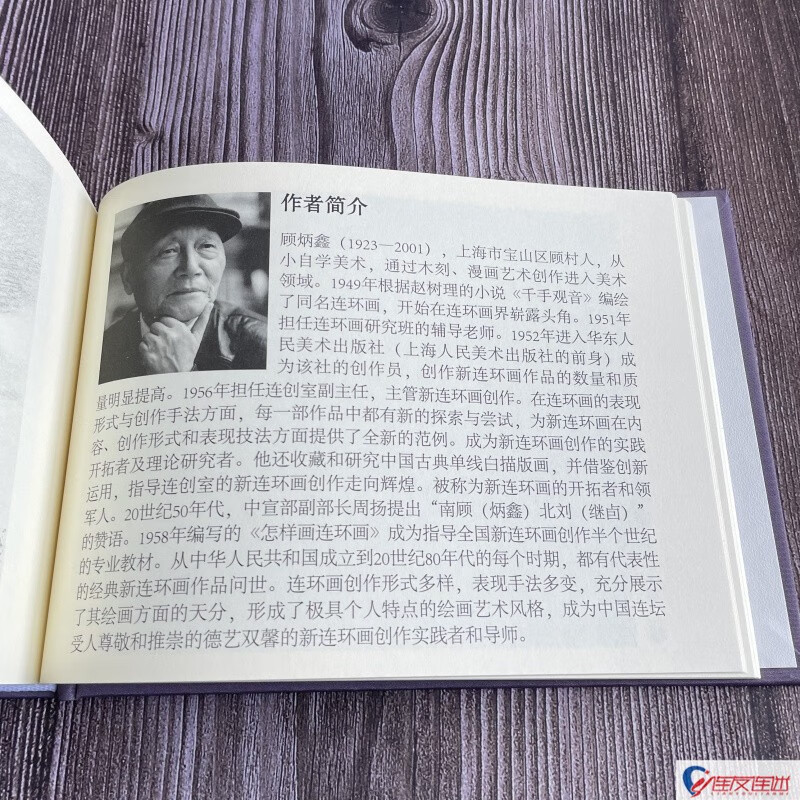 作者简介
顾炳鑫（1923—2001），上海市宝山区顾村人，从
小自学美术，通过木刻、漫画艺术创作进入美术
领域。1949年根据赵树理的小说《千手观音》编绘
了同名连环画，开始在连环画界崭露头角。1951年
担任连环画研究班的辅导老师。1952年进入华东人
民美术出版社（上海人民美术出版社的前身）成
为该社的创作员，创作新连环画作品的数量和质
量明显提高。1956年担任连创室副主任，主管新连环画创作。在连环画的表现
形式与创作手法方面，每一部作品中都有新的探索与尝试，为新连环画在内
容、创作形式和表现技法方面提供了全新的范例。成为新连环画创作的实践
开拓者及理论研究者。他还收藏和研究中国古典单线白描版画，并借鉴创新
运用，指导连创室的新连环画创作走向辉煌。被称为新连环画的开拓者和领
军人。20世纪50年代，中宣部副部长周扬提出“南顾（炳鑫）北刘（继卣）”
的赞语。1958年编写的《怎样画连环画》成为指导全国新连环画创作半个世纪
的专业教材。从中华人民共和国成立到20世纪80年代的每个时期，都有代表性
的经典新连环画作品问世。连环画创作形式多样，表现手法多变，充分展示
了其绘画方面的天分，形成了极具个人特点的绘画艺术风格，成为中国连坛
受人尊敬和推崇的德艺双馨的新连环画创作实践者和导师。
连友连世